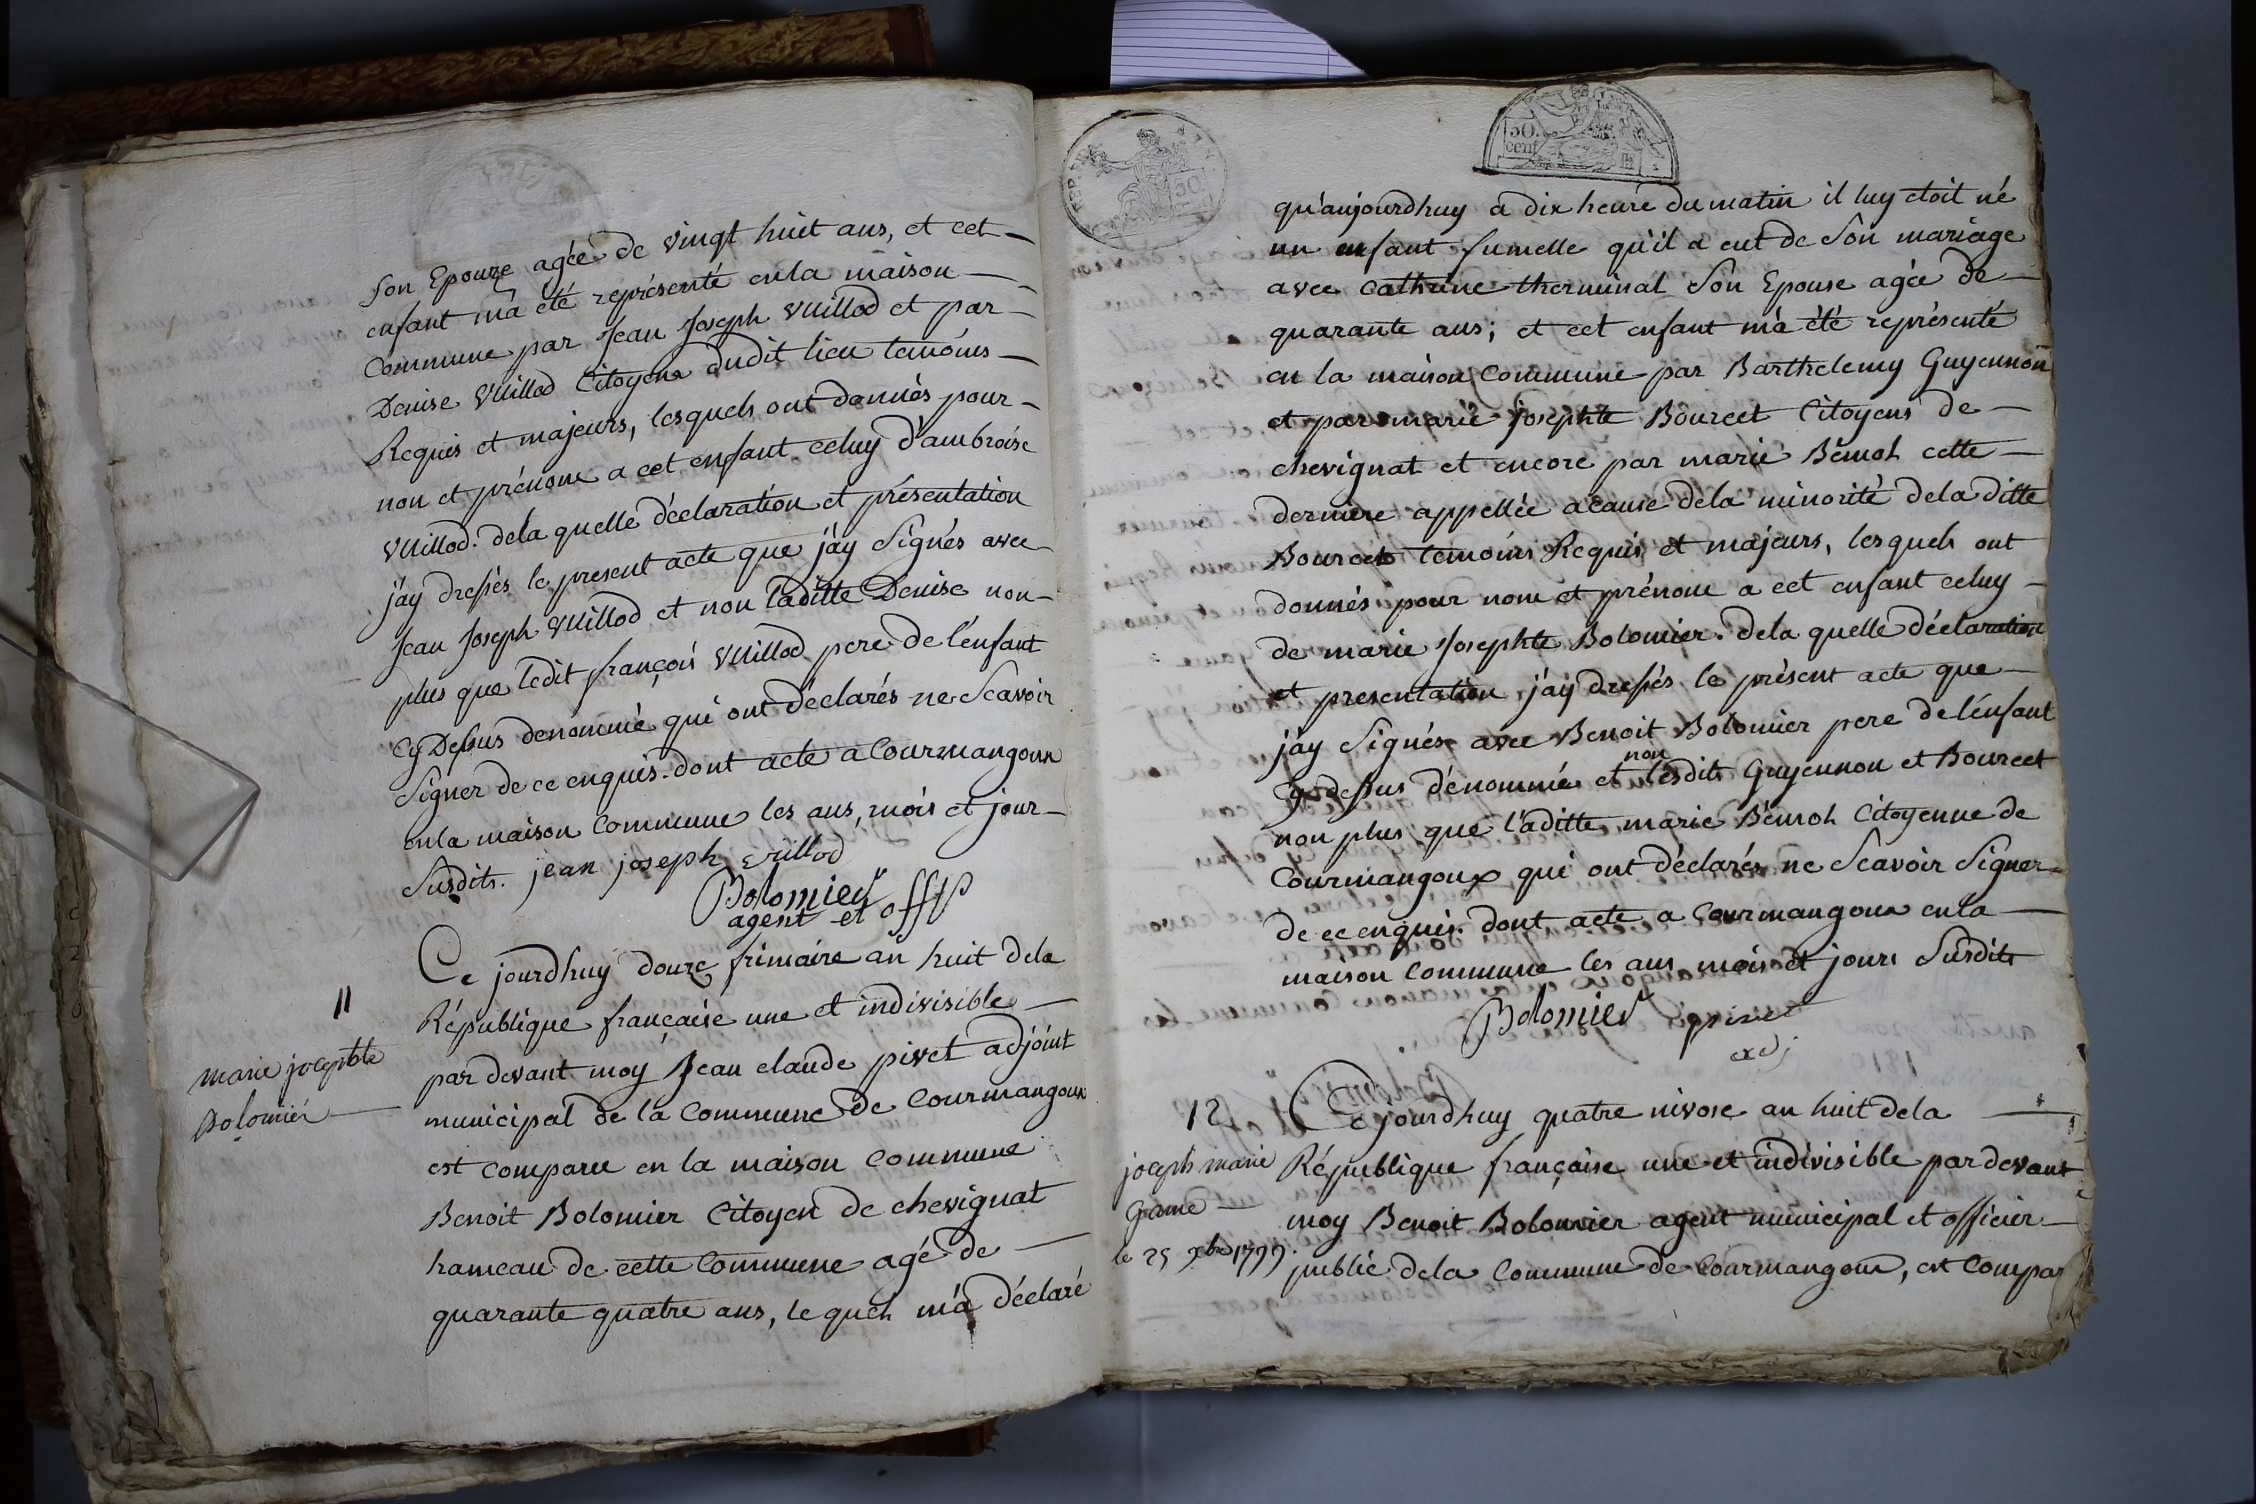 Son Epouze agée de vingt huit ans, et cet
enfant m'a été représenté en la maison
Commune par Jean Joseph Vuillod et par
Denise Vuillod Citoyens dudit lieu temoins
Requis et majeurs, lesquels ont donnés pour
non et prénom a cet enfant celuy d'ambroise
Vuillod. dela quelle déclaration et présentation
j'ay dressés le present acte que j'ay Signés avec
Jean Joseph Vuillod et non laditte Denise non
plus que ledit françois Vuillod pere de l'enfant
Cy Dessus denommé qui ont déclarés ne Scavoir
Signer de ce enquis. dont acte a Courmangoux
en la maison Commune les ans, mois et jour
Susdits. jean joseph vuillod
Bolomier
agent et off P
Ce jourdhuy douze frimaire an huit dela
11
République française une et indivisible
par devant moy Jean claude pivet adjoint
marie josephte
Bolomier
municipal de la Commune de Courmangoux
est comparu en la maison Commune
Benoit Bolomier Citoyen de chevignat
hameau de cette Commune agé de
quarante quatre ans, le quel m'a déclaré
50.
cent
qu'aujourdhuy a dix heure du matin il luy etoit né
un enfant fumelle qu'il a eut de Son mariage
avec Cathrine therminal Son Epouse agée de
quarante ans; et cet enfant m'a été représenté
en la maison Commune par Barthelemy Guyennon
et par marie josephte Bourcet Citoyens de
chevignat et encore par marie Bémol cette
dernière appellée a cause dela minorité dela ditte
Bourcet temoins Requis et majeurs, lesquels ont
donnés pour nom et prénom a cet enfant celuy
de marie Josephte Bolomier. dela quelle déclaration
et presentation j'ay dressés le présent acte que
j'ay Signés avec Benoit Bolomier pere de l'enfant
Cy dessus dénommé et non lesdits Guyennon et Bourcet
non plus que laditte marie Bémol Citoyenne de
Courmangoux qui ont déclarés ne Scavoir Signer
de ce enquis. dont acte a Courmangoux en la
maison Commune les ans mois et jours Susdits
Bolomier pivet
adj
12 Ce jourdhuy quatre nivose an huit dela
joseph marie
Game
le 25 xbre 1799.
République française une et indivisible par devant
moy Benoit Bolomier agent municipal et officier
public dela Commune de Courmangoux, est Compar